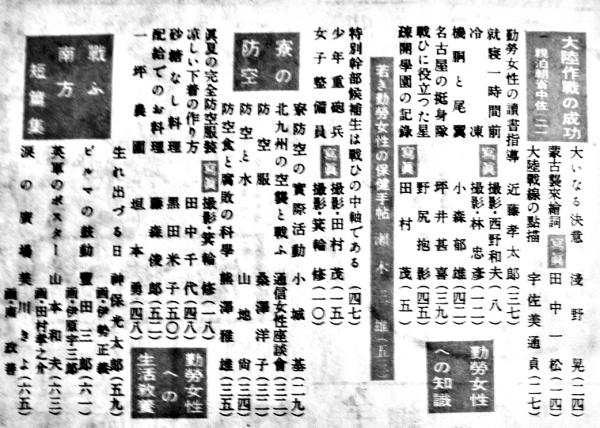 大陸作戰の成功
大いなる決意 淺野晃(二四)
蒙古襲來繪詞 田中一松(一四)
大陸戰線の點描 宇佐美通貞(二七)
勤勞女性の讀書指導 近藤孝太郎(三七)
就寢一時間前 寫眞 撮影・西野和夫(八)
冷凍 寫眞 撮影・林忠彥(一二)
機胴と尾翼 小森郁雄(四二)
名古屋の挺身隊 坪井甚喜(三九)
戰ひに役立つた星 野尻抱影(四五)
疎開學園の記錄 寫眞 田村茂(五)
勤勞女性への知識
若き勤勞女性の保健手帖 瀨木三雄(五三)
特別幹部候補生は戰ひの中軸である(四七)
少年重砲兵 寫眞 撮影・田村茂(一五)
女子整備員 寫眞 撮影・箕輪修(一〇)
寮の防空
寮防空の實際活動 小城基(二九)
北九州の空襲と戰ふ 通信女性座談會(三二)
防空服 桑澤洋子(三三)
防空と水 山地宙(三四)
防空食と腐敗の科學 熊澤雅雄(三五)
眞夏の完全防空服裝 寫眞 撮影・箕輪修(一八)
涼しい下着の作り方 田中千代(四八)
砂糖なし料理 黑田米子(五〇)
配給でのお料理 藤森俊郎(五二)
一坪農園 坂本勇(四八)
勤勞女性への生活敎養
戰ふ南方短篇集
生れ出づる日 神保光太郎(五九)
畫・伊勢正義
ビルマの鼓動 豐田三郎(六一)
畫・伊原宇三郎
英軍のポスター 山本和夫(六三)
畫・田村孝之介
淚の廣場 美川きよ(六五)
畫・南政善